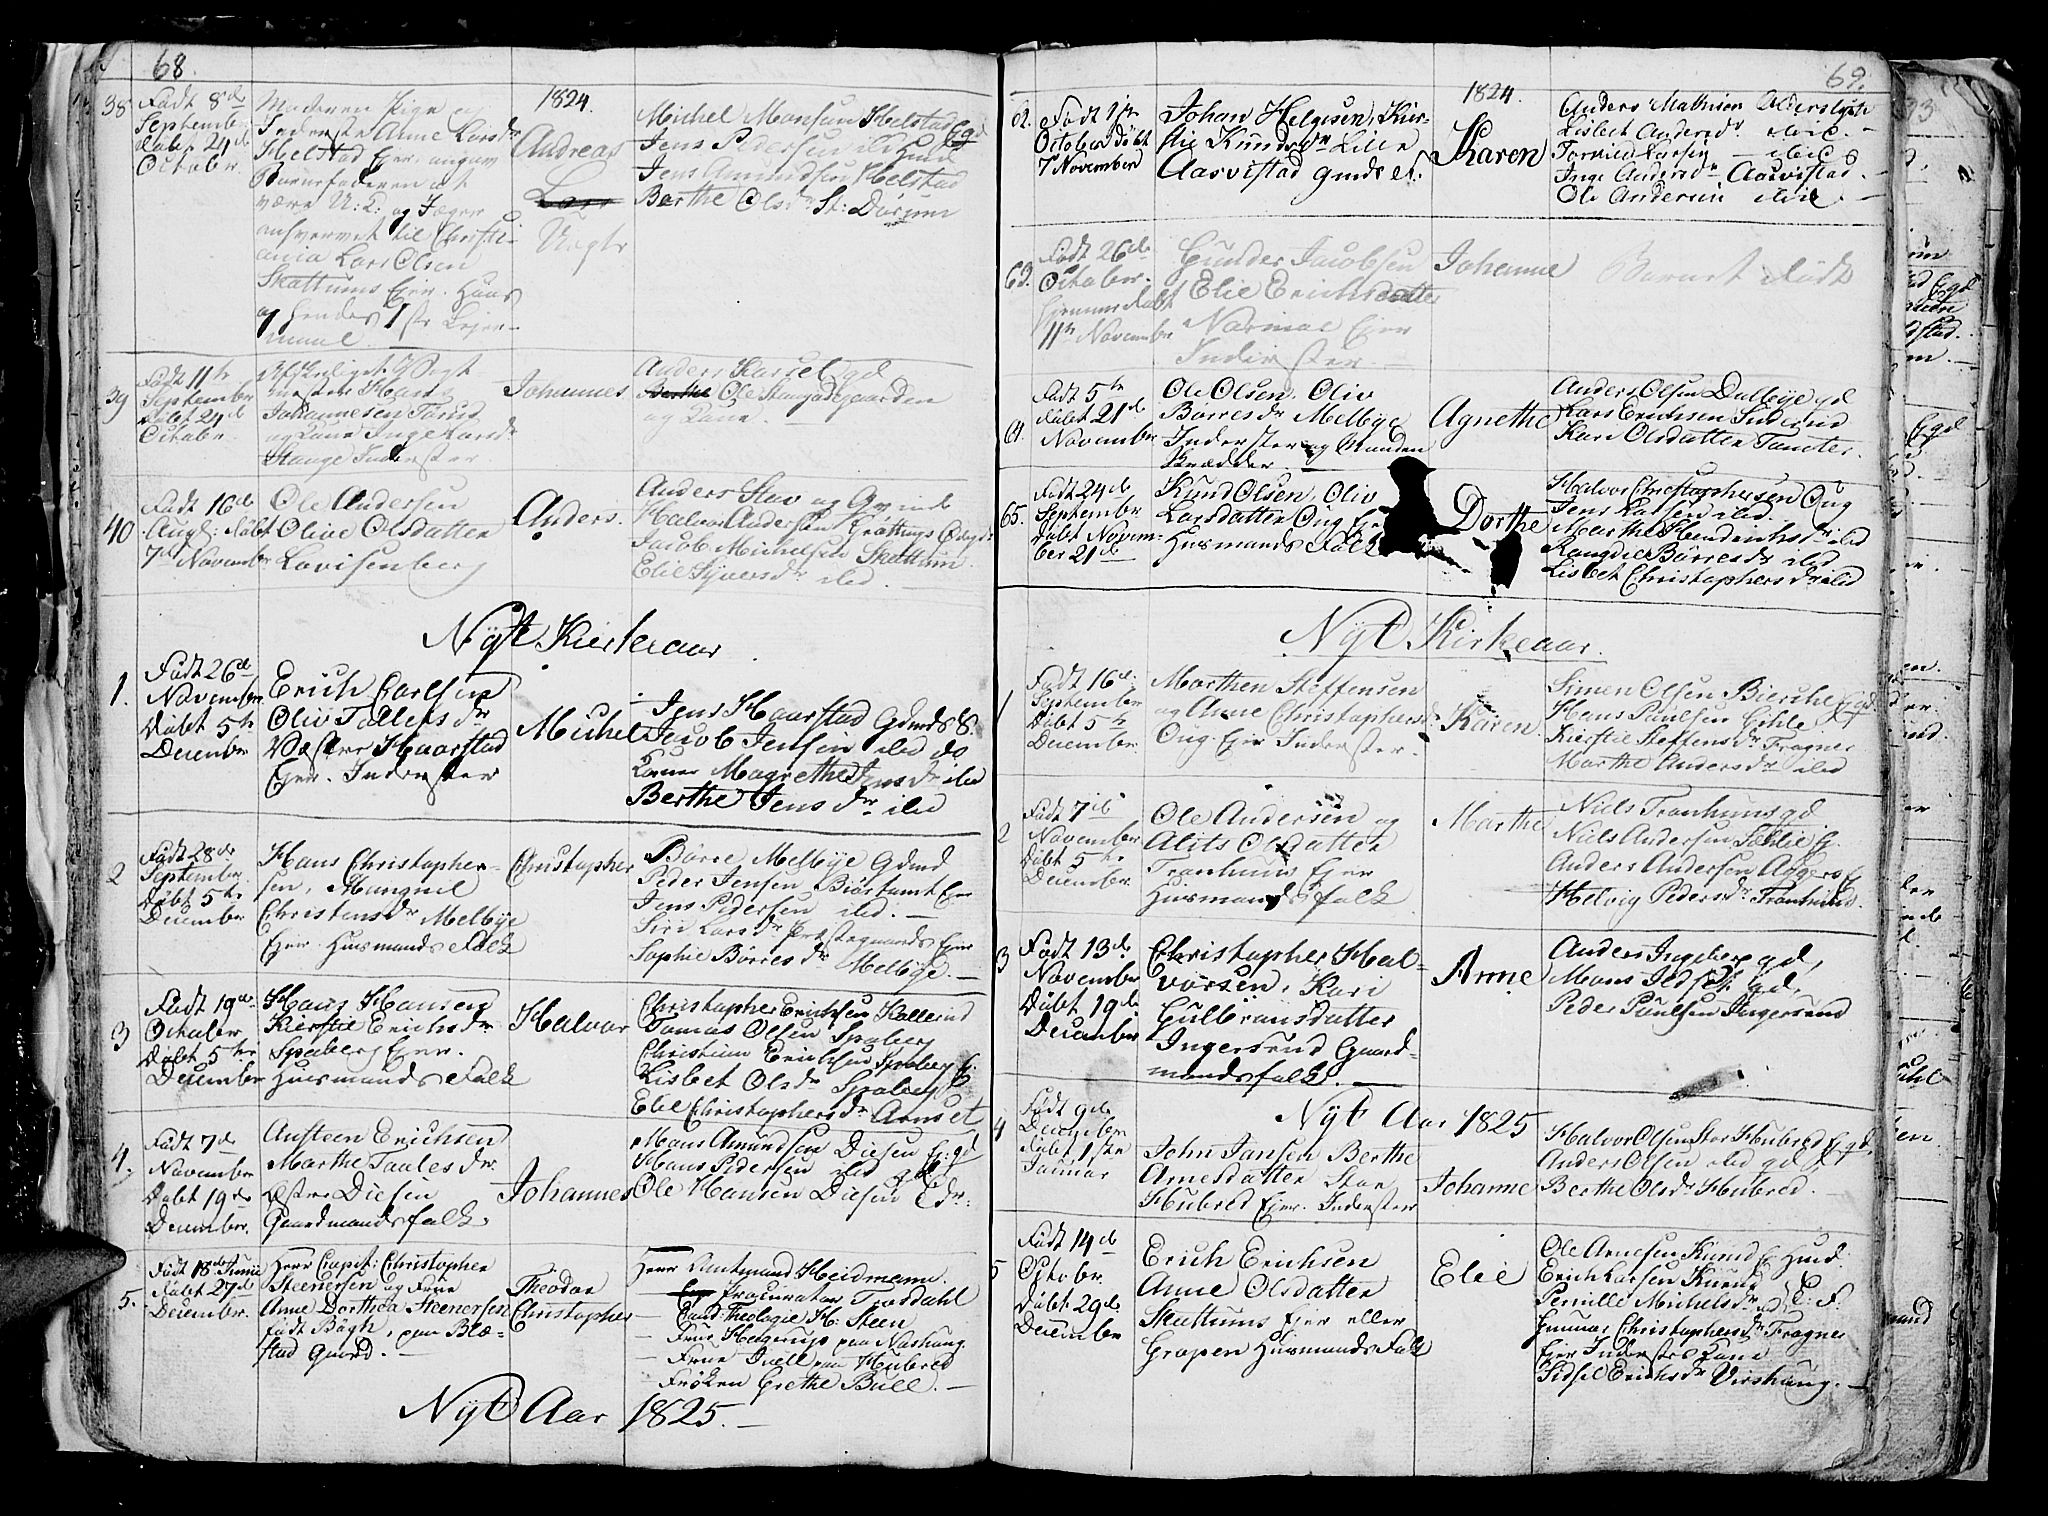 68.
1824.
38
Født 8de
September
døbt 24de
October
Moderen Pige og
Inderste Anne Larsdr
Helstad Ejer. angav
Barnefaderen at
være U:O: og Jæger
anhvervet til Christi-
ania Lars Olsen
Skattums Ejer. Hans
og hendes 1ste Lejer-
maal.
Andreas
Uægte
Michel Monsen Helstad Egd
Jens Pedersen ibid Huusd
Jens Amundsen Helstad
Berthe Olsdr St: Dørum
39
Født 11te
September
døbt 24de
October
Johannesen
og Kone Inge Larsdr
Stange Inderster.
Johannes
Anders Karset gd
Ole Stangdegaarden
og Kone.
40
Født 16de
Aug: døbt
7de November
Ole Andersen
Olive Olsdatter
Lovisenberg
Anders.
Anders Stav og Qvinde
Halvor Andersen
Jacob Michelsen Skattum
Elie Syversdr ibid.
Nyt Kirkeaar
1.
Født 26de
November
Døbt 5te
December
Erich Carlsen
Oliv Tollefsdr
Væstre Haarstad
Ejer. Inderster
Michel
Jens Haarstad Gdmds S.
Jacob Jensen ibid do
Konen Magrethe Jensdr ibid
Berthe Jensdr ibid
2
Født 28de
September
døbt 5te
December
Hans Christopher-
sen, Mangniel
Christensdr Melbye
Ejer. Husmands Folk
Christopher
Børre Melbye Gdmd
Peder Jensen Biørtomt Ejer
Jens Pedersen ibid.
Siri Larsdr Præstegaards Ejer
Sophie Børresdr Melbye.
3
Født 19de
October
Døbt 5te
December
Hans Hansen
Kierstie Erichsdr
Spaberg Ejer.
Huusmands Folk
Halvor
Christopher Erichsen Kallerud
Tomas Olsen Spaberg
Christian Erichsen Spaberg E:
Lisbet Olsdr Spaberg
Elie Christophersdr Arnset
4.
Født 7de
November
Døbt 19de
December.
Austeen Erichsen
Marthe Taalesdr
Østre Diesen
Gaardmandsfolk.
Johannes
Mons Amundsen Diesen Ej: gd
Hans Pedersen ibid gd
Ole Hansen Diesen Edr:
5.
Født 18de Junii
Døbt 27de
December.
Herr Capit: Christopher
Steenersen og Frue
Anne Dorthea Steenersen
født Bøgh, paa Blæ-
stad Gaard.
Theodor
Christopher
Herr Amtmand Heidmann.
Procurator Trosdahl
Cand: Theologie H: Steen
Frue Hagerup paa Nashaug.
Frue Juell paa Hubred
Frøken Grethe Bull.
Nyt Aar 1825.
69.
1824.
62.
Født 1ste
October Døbt
7 November
Johan Helgesen, Kier-
stie Knudsdr Lille
Aasvistad Gmdset.
Karen
Anders Mathisen Alderslyst
Lisbet Andersdr ibid.
Torkild Larsen ibid
Inge Andersdr Aasvistad.
Ole Andersen ibid
63.
Født 26de
October.
hjemmedøbt
11te November
Gunder Jacobsen
Elie Erichsdatter
Normoe Ejer
Inderster.
Johanne
Barnet dødt
Født 5te
døbt 21de
November
Ole Olsen. Oliv
Børresdr Melbye
Inderster og Manden
Skrædder.
Agnethe
Anders Olsen Dalbye gd
Lars Erichsen Inderud
Kari Olsdatter Tomter.
65.
Født 24de
September
døbt Novem-
ber 21de
Knud Olsen, Oliv
Larsdatter Oug Ejer
Husmands Folk
Dorthe
Halvor Christophersen Oug
Jens Larsen ibid.
Marthe Hendrichsdr ibid
Rangdie Børresdr ibid
Lisbet Christophersdr ibid
Nyt Kirkeaar.
1
Født 16de
September
Døbt 5te
December.
Morthen Steffensen
og Anne Christophersdr
Oug. Ejer Inderster.
Karen
Simen Olsen Bierche Egd
Hans Paulsen
Kirstie Steffensdr Fragner
Marthe Andersdr ibid
2
Født 7de
November
Døbt 5te
December.
Ole Andersen og
Alits Olsdatter
Tronhuus Ejer
Husmandsfolk
Marthe
Niels Tronhuus gd.
Niels Andersen Sælie G.
Anders Andersen
Helvig Pedersdr Tronhuus.
3
Født 13de
November
Døbt 19de
December
Christopher Hal-
vorsen, Kari
Gulbransdatter
Ingersrud Gaard-
mandsfolk.
Anne
Anders Ingeberg gd,
Mons Ildset gd,
Peder Paulsen Ingersrud
Nyt Aar 1825
4
Født 9de
December
døbt 1ste
Januar
John Jansen Berthe
Arnesdatter Stor
Hubred Ejer. Inderster
Johanne
Halvor Olsen Stor Hubred Ejgd.
Anders Olsen ibid gd
Berthe Olsdr Hubred.
5
Født 14de
Octobr.
Døbt 29de
December
Erich Erichsen
Anne Olsdatter
Skattums Ejer eller
Gropen Husmands Folk
Elie
Ole Arnesen Kurud Ej Hmd.
Erich Larsen Kurud
Pernille Michelsdr
Gunnar Christophersdr Fragner
Ejer Inderstes Kone
Sidsel Erichsdr Virshaug.